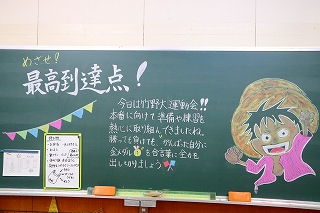 めざせ!
最高到達点!
今日は竹野大運動会!!
本番に向けて準備や練習を
熱心に取り組んできましたね。
勝っても負けても、がんばった自分に
金メダル を合言葉に全力を
出しきりましょう